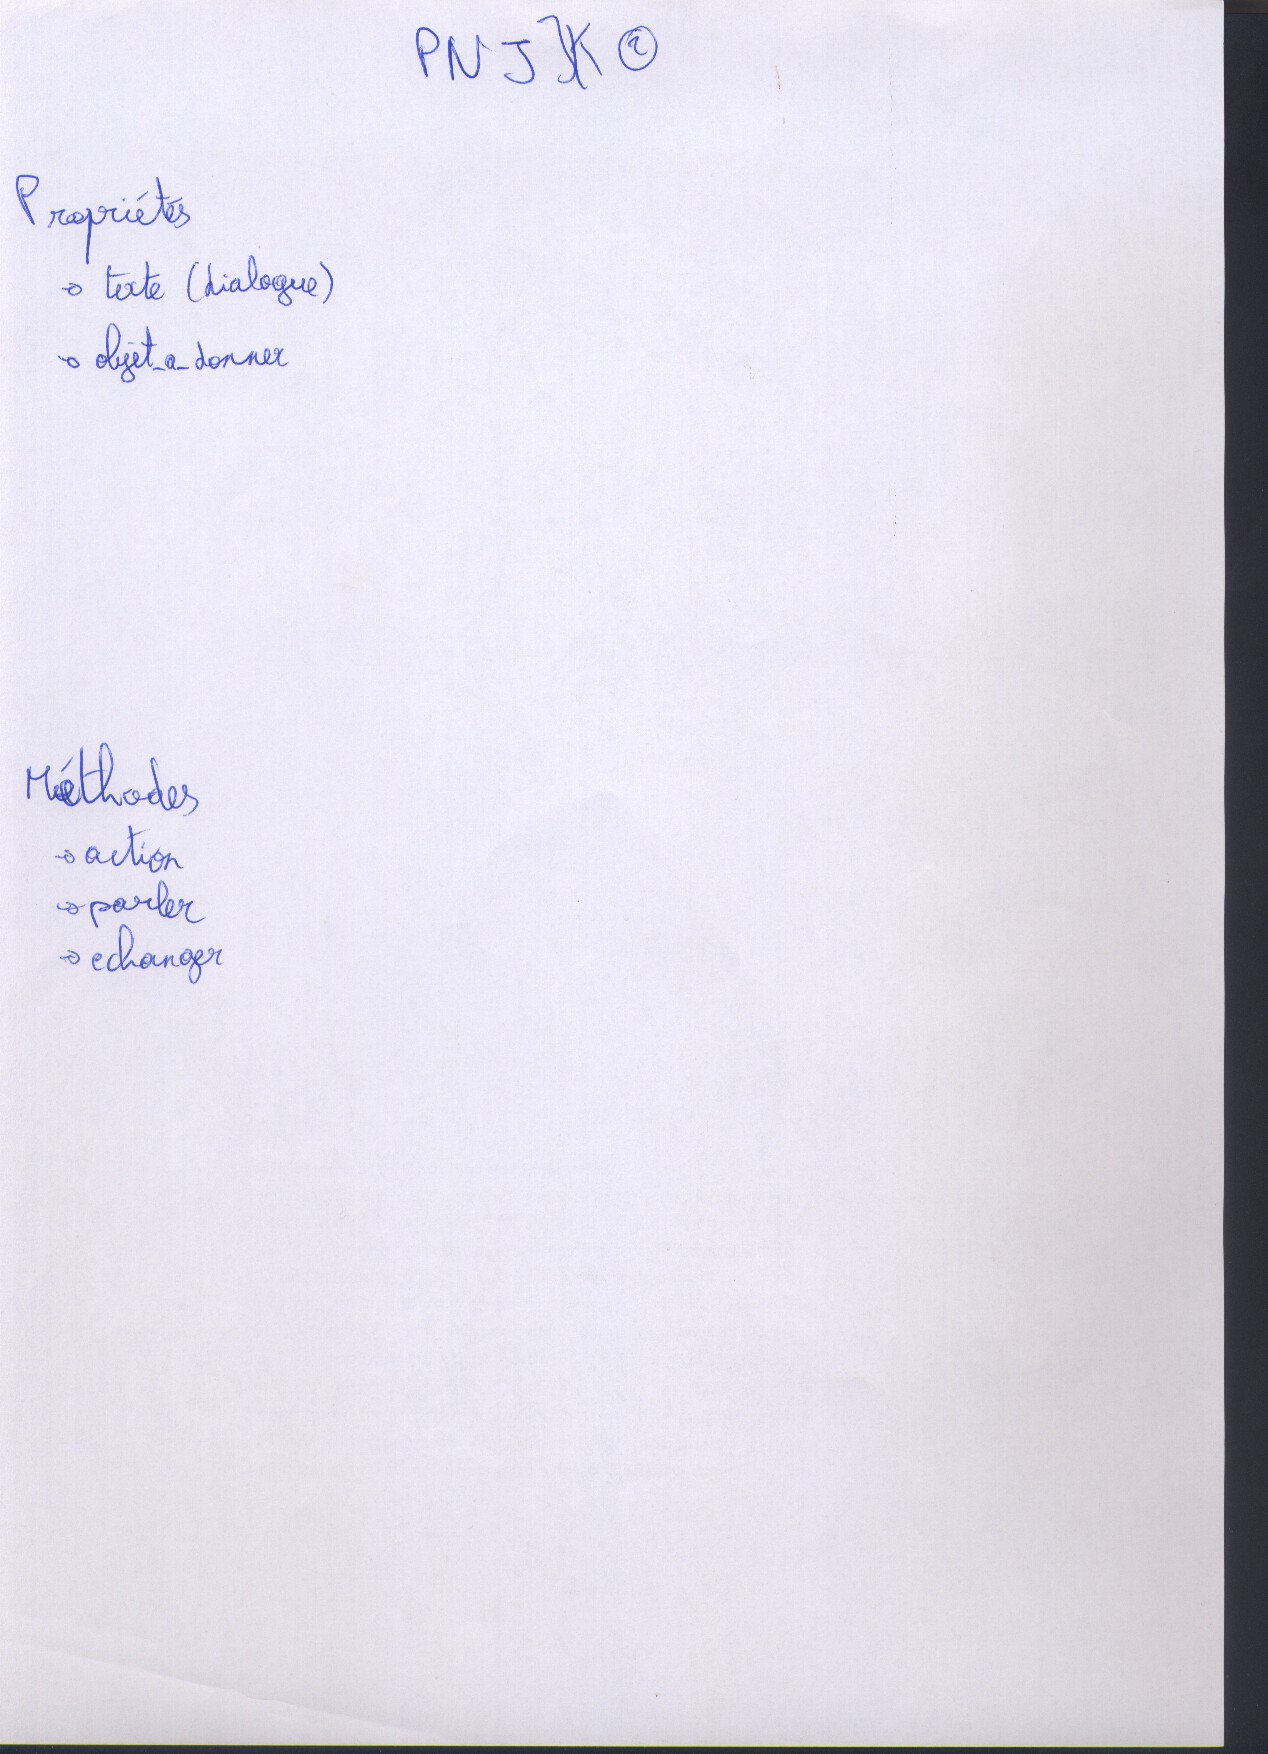 PNJ
Propriétés
→ texte (dialogue)
→ objet_a_donner
Méthodes
→ action
→ parler
→ echanger